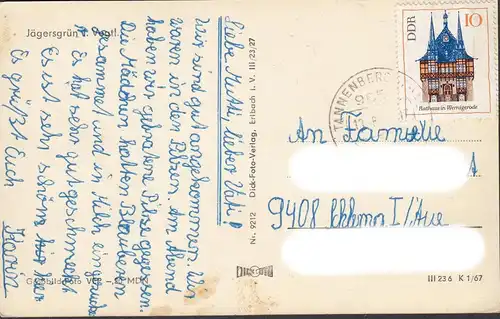 Jägersgrün i. Vogtl.
Liebe Mutti, lieber Vati!
Wir sind gut angekommen. Wir
waren in den Pilzen. Am Abend
haben wir gebratene Pilze gegessen.
Die Mädchen hatten Blaubeeren
gesammelt und in Milch
Es hat sehr gut geschmeckt
Es ist sehr schön hier
Es grüßt Euch
Nr. 9212 Dick-Foto-Verlag, Erlbach i. V. III/23/27
10
DDR
Rathaus in Wernigerode
TANNENBERG
An Familie
9408 I/Aue
III 23 6 K 1/67